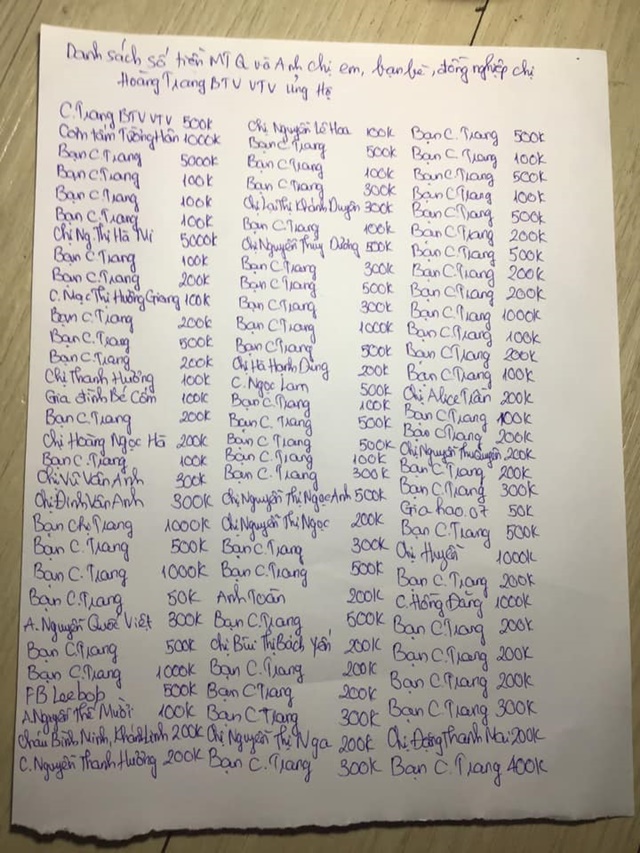 Danh sách số tiền MTQ và Anh chị em, bạn bè, đồng nghiệp chị
Hoàng Trang BTV VTV ủng Hộ
C.Trang BTV VTV 500k
Cơm tấm Tường Hân 1000k
Bạn C.Trang 5000k
Bạn C.Trang 100k
Bạn C.Trang 100k
Bạn C.Trang 100k
Chị Ng.Thị Hà Mi 5000k
Bạn C.Trang 100k
Bạn C.Trang 200k
C. Ngọc Thị Hường Giang 100k
Bạn C.Trang 200k
Bạn C.Trang 500k
Bạn C.Trang 200k
Chị Thanh Hường 100k
Gia đình Bé Cốm 100k
Bạn C.Trang 200k
Chị Hoàng Ngọc Hà 200k
Bạn C.Trang 100k
Chị Vũ Vân Anh 300k
Chị Đinh Vân Anh 300k
Bạn Chị Trang 1000k
Bạn C.Trang 500k
Bạn C.Trang 1000k
Bạn C.Trang 50k
A. Nguyễn Quốc Việt 300k
Bạn C.Trang 500k
Bạn C.Trang 1000k
FB Leebop 500k
A.Nguyễn Thế Mười 100k
Cháu Bình, Ninh, Khánh Linh 200k
C. Nguyễn Thanh Hường 200k
Chị Nguyễn Lê Hoa 100k
Bạn C.Trang 500k
Bạn C.Trang 100k
Bạn C.Trang 300k
Chị Lại Thị Khánh Duyên 300k
Bạn C.Trang 100k
Chị Nguyễn Thùy Dương 500k
Bạn C.Trang 300k
Bạn C.Trang 500k
Bạn C.Trang 300k
Bạn C.Trang 1000k
Bạn C.Trang 500k
Chị Hà Hạnh Dung 200k
C. Ngọc Lam 500k
Bạn C.Trang 100k
Bạn C.Trang 500k
Bạn C.Trang 500k
Bạn C.Trang 100k
Bạn C.Trang 300k
Chị Nguyễn Thị Ngọc Anh 500k
Chị Nguyễn Thị Ngọc 200k
Bạn C.Trang 300k
Bạn C.Trang 500k
Anh Toàn 200k
Bạn C.Trang 500k
Chị Bùi Thị Bách Yến 200k
Bạn C.Trang 200k
Bạn C Trang 200k
Bạn C Trang 300k
Chị Nguyễn Thị Nga 200k
Bạn C.Trang 300k
Bạn C.Trang 500k
Bạn C.Trang 100k
Bạn C.Trang 500k
Bạn C.Trang 100k
Bạn C.Trang 500k
Bạn C.Trang 200k
Bạn C.Trang 500k
Bạn C.Trang 200k
Bạn C.Trang 200k
Bạn C.Trang 1000k
Bạn C.Trang 100k
Bạn C Trang 200k
Bạn C.Trang 100k
Chị Alice Trần 200k
Bạn C.Trang 100k
Bạn C.Trang 200k
Chị Nguyễn Thu Quyên 200k
Bạn C.Trang 200k
Bạn C.Trang 300k
Gia hao.07 50k
Bạn C.Trang 500k
Chị Huyền 1000k
Bạn C.Trang 200k
C.Hồng Đăng 1000k
Bạn C.Trang 200k
Bạn C.Trang 200k
Bạn C.Trang 200k
Bạn C.Trang 300k
Chị Đặng Thanh Mai 200k
Bạn C.Trang 400k